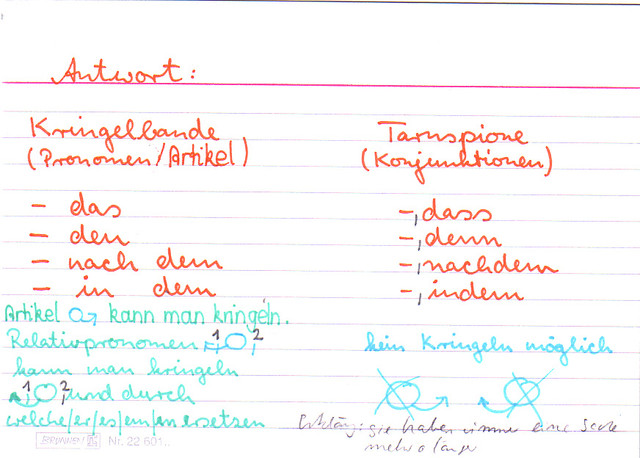 Antwort:
Kringelbande
(Pronomen/Artikel)
- das
- den
- nach dem
- in dem
Tarnspione
(Konjunktionen)
-, dass
-, denn
-, nachdem
-, indem
Artikel kann man kringeln.
Relativpronomen 1 2
kann man kringeln
1 2, und durch
welche/er/es/em/en ersetzen
kein Kringeln möglich
sie haben immer eine
mehr o länger
BRUNNEN Nr. 22 601..